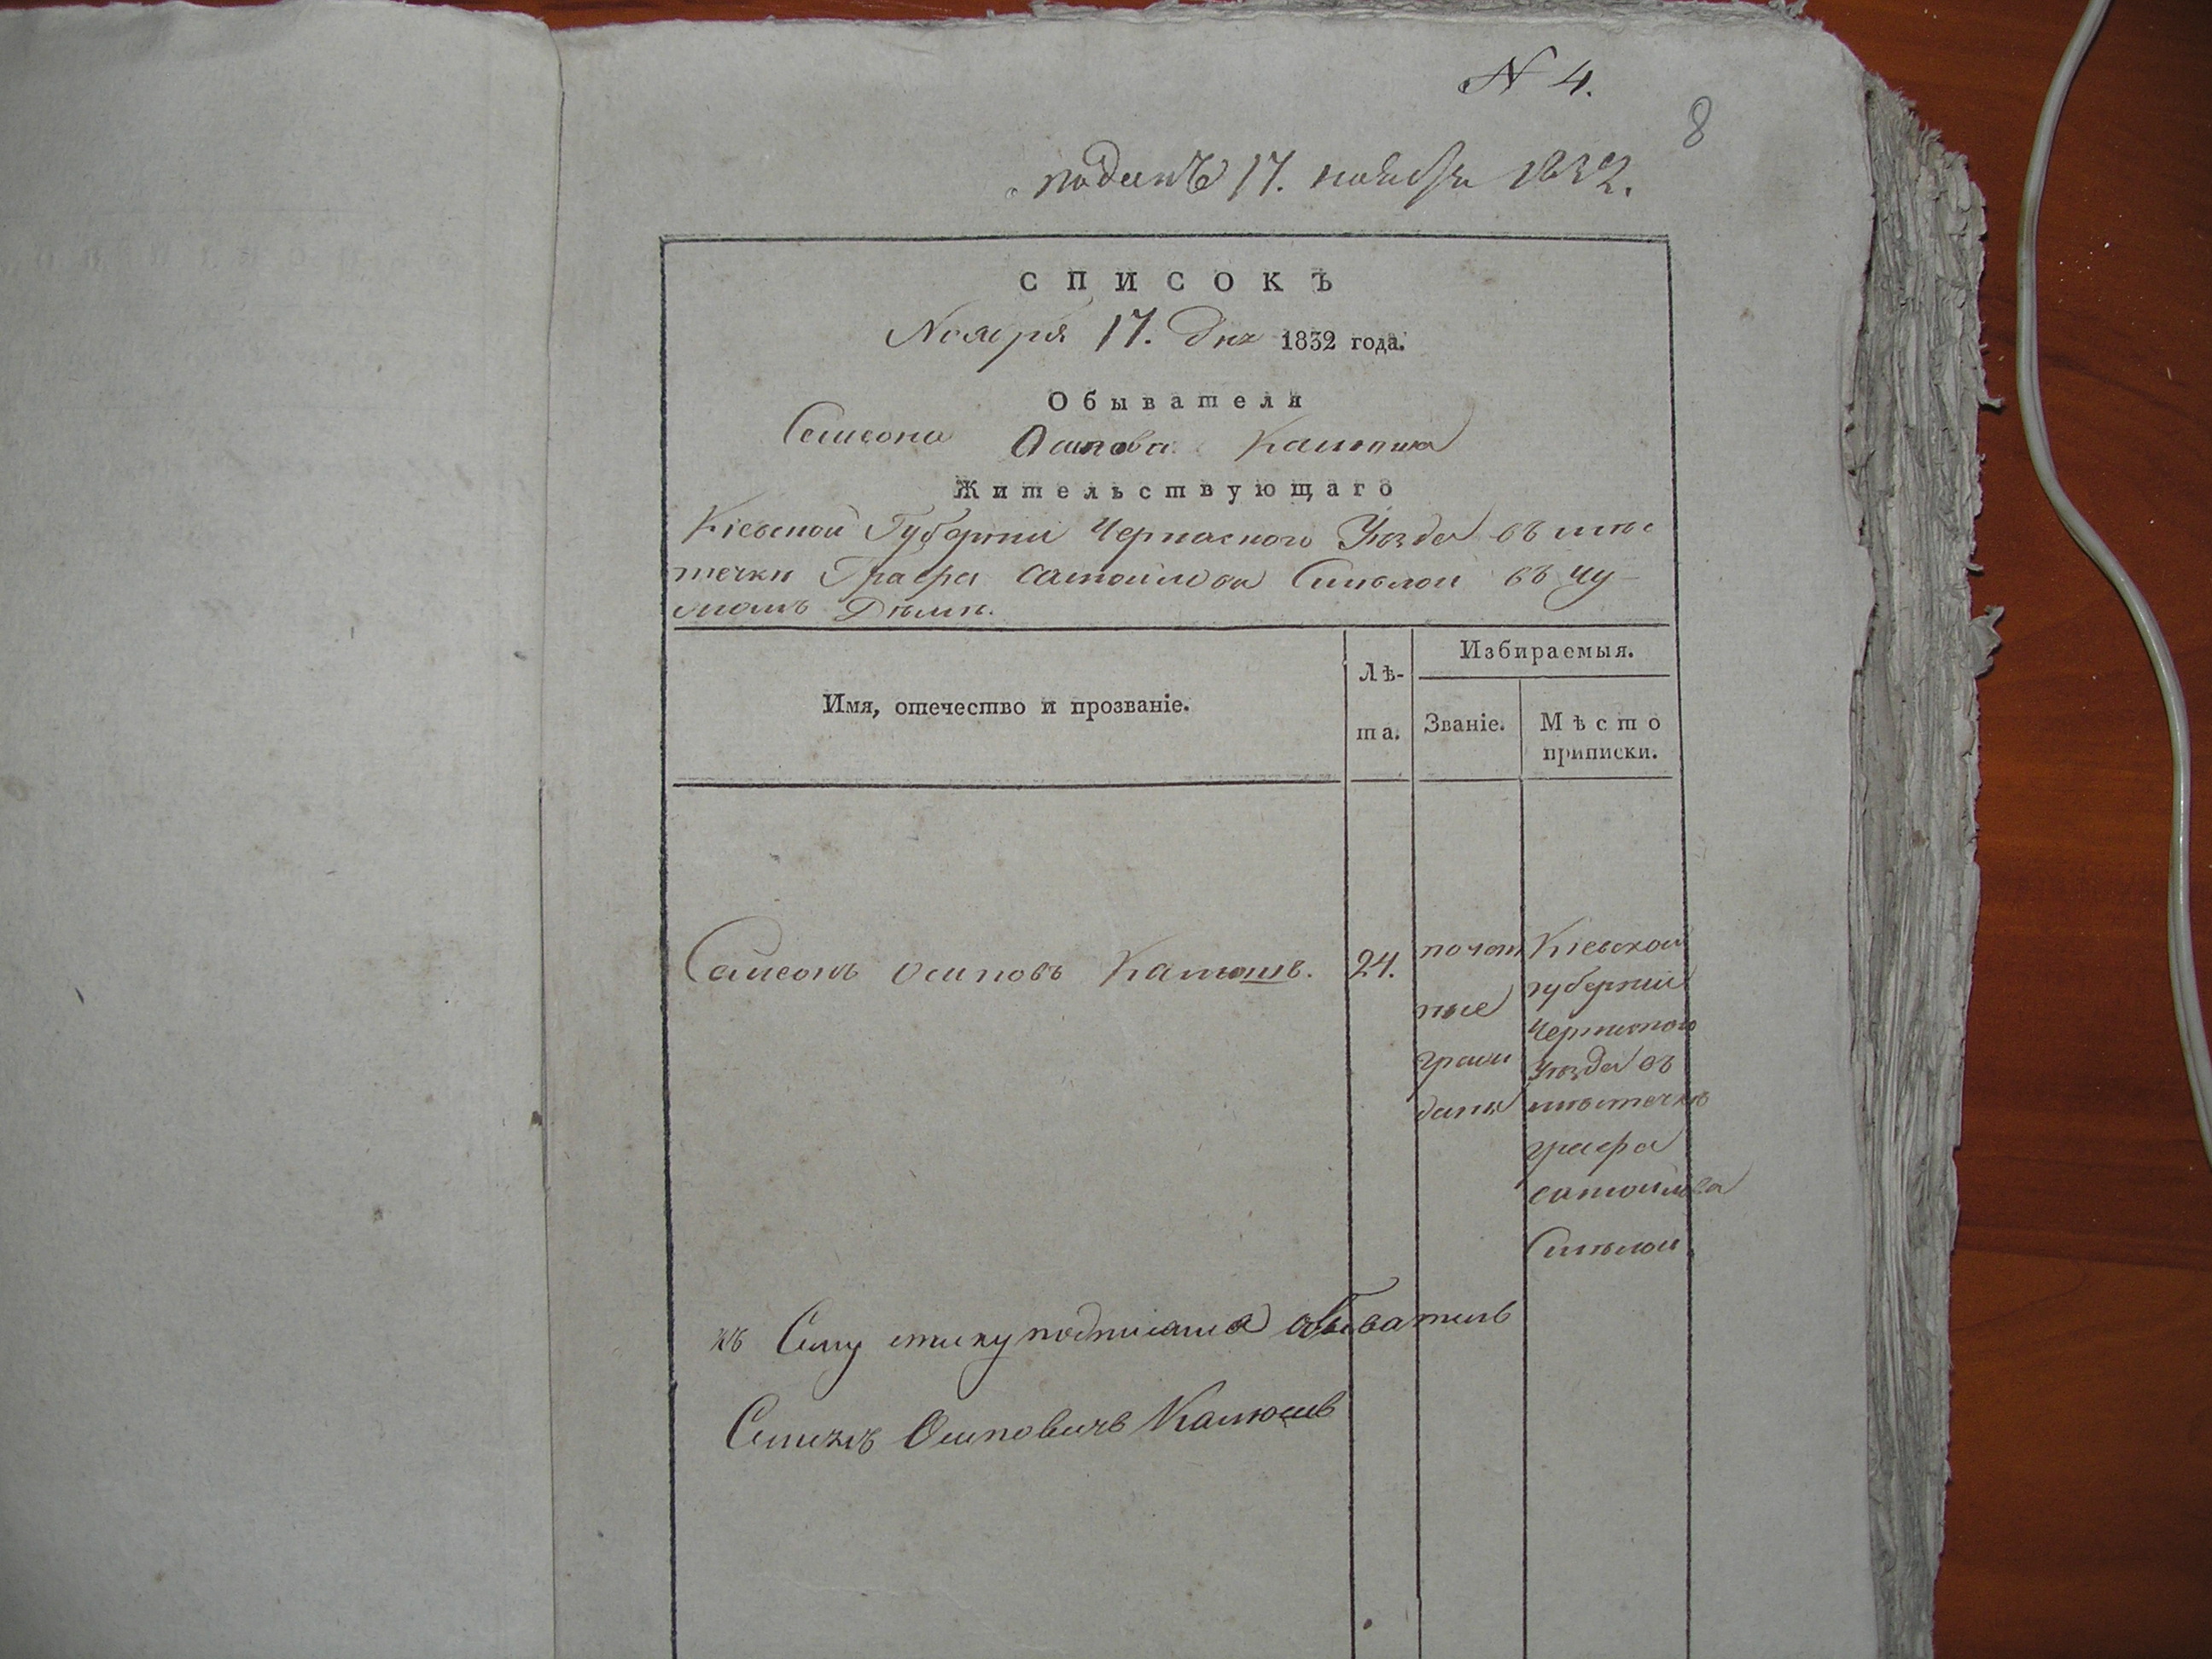 N 4.
8
поданъ 17. ноября 1832.
СПИСОКЪ
Ноября 17. дня 1832 года.
Обывателя
Самсона Осипова Калюша
Жительствующаго
Кіевской Губерніи Черкаского Уезда въ мѣс
течки Графа Самойлова Смелой въ чу-
жомъ Домѣ.
Имя, отечество и прозваніе.
Лѣ-
та.
Избираемыя.
Званіе.
Мѣсто
приписки.
Самсонъ Осиповъ Калюшъ.
24.
почот
ные
граж
дани
Кіевской
губерніи
Черкаского
Уезда въ
мѣстечкѣ
графа
самойлова
Смелой
къ Сему списку подписался обыватель
Осиповичъ Калюшъ